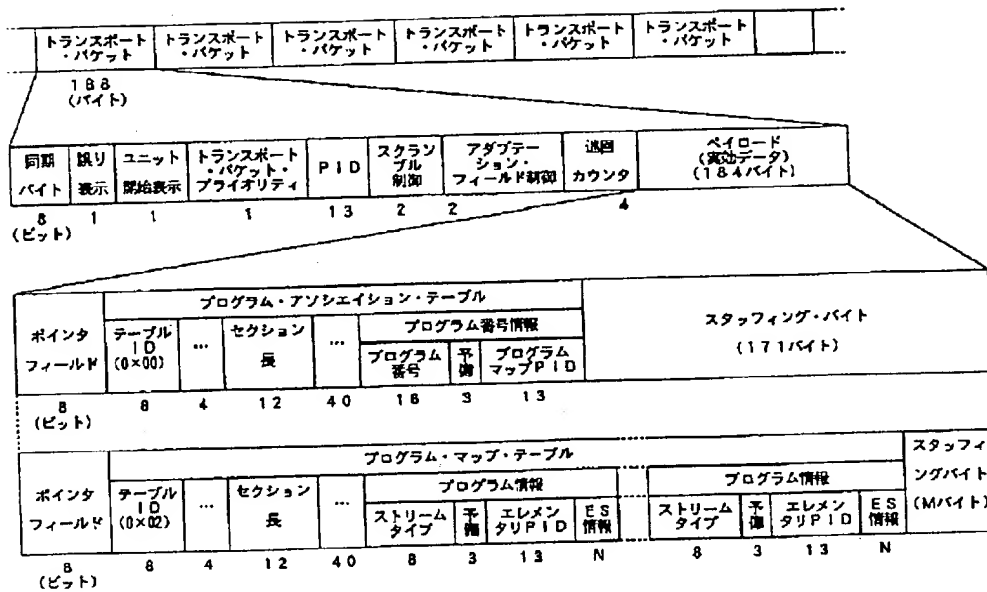 トランスポート・パケット
トランスポート・パケット
トランスポート・パケット
トランスポート・パケット
トランスポート・パケット
トランスポート・パケット
188
(バイト)
同期バイト
誤り表示
ユニット開始表示
トランスポート・パケット・プライオリティ
PID
スクランブル制御
アダプテーション・フィールド制御
巡回カウンタ
ペイロード
(実効データ)
(184バイト)
8 1 1 1 13 2 2 4
(ビット)
プログラム・アソシエイション・テーブル
ポインタフィールド
テーブルID
(0×00)
…
セクション長
…
プログラム番号情報
プログラム番号
予備
プログラムマップPID
スタッフィング・バイト
(171バイト)
8 8 4 12 40 16 3 13
(ビット)
プログラム・マップ・テーブル
ポインタフィールド
テーブルID
(0×02)
…
セクション長
…
プログラム情報
ストリームタイプ
予備
エレメンタリPID
ES情報
プログラム情報
ストリームタイプ
予備
エレメンタリPID
ES情報
スタッフィングバイト
(Mバイト)
8 8 4 12 40 8 3 13 N 8 3 13 N
(ビット)